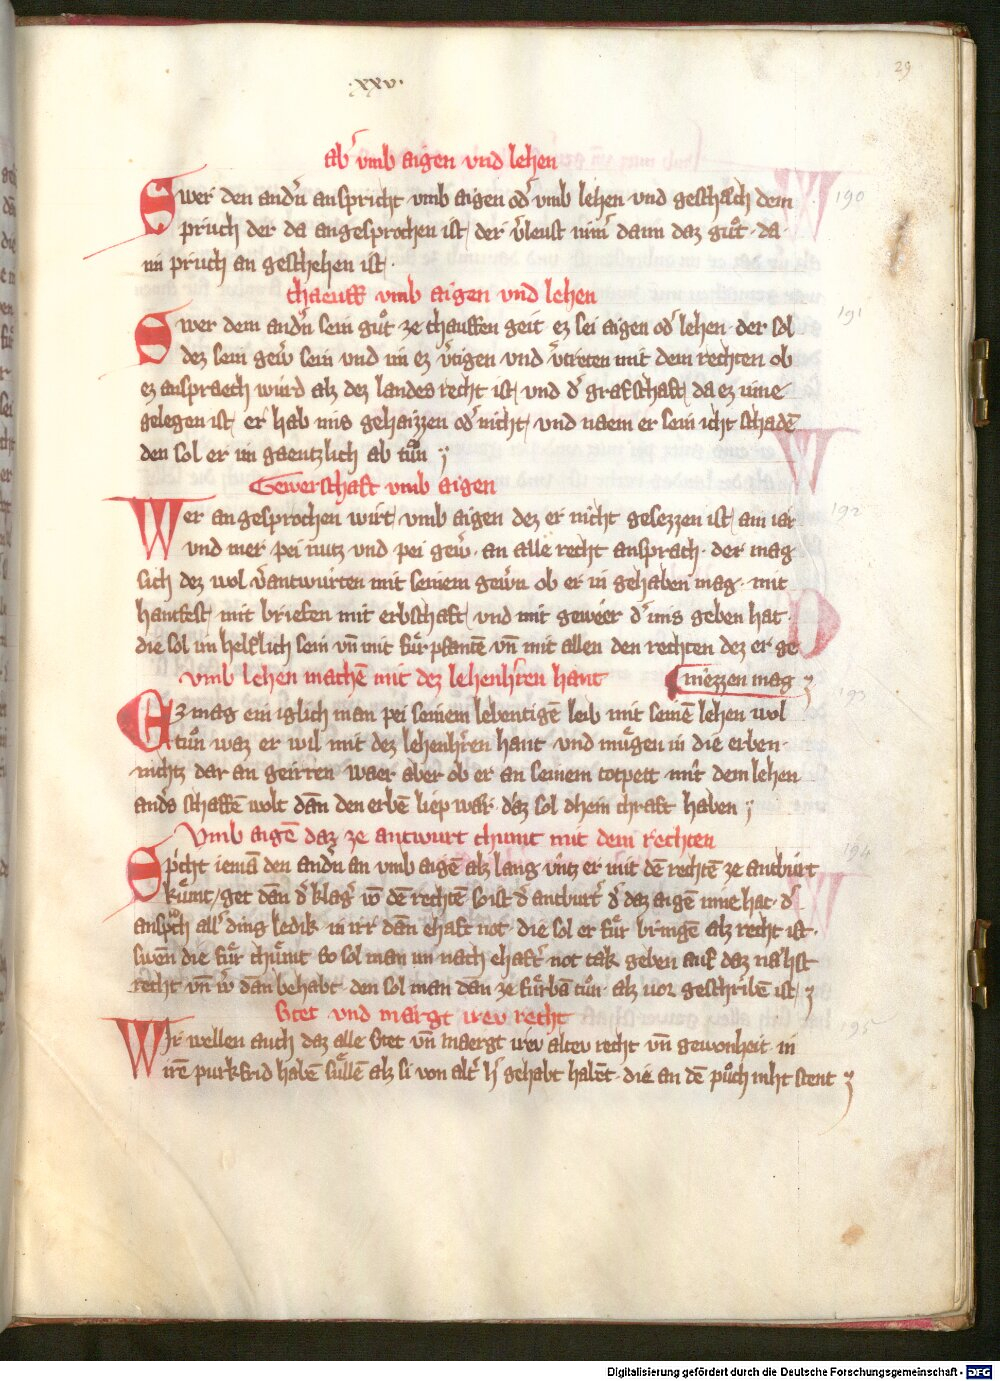 ·xxv·
29
Ab͛ vmb aigen vnd lehen
Swer den andn̄ anspricht vmb aigen od͛ vmb lehen vnd geschäch dem
190
pruch der da angesprochen ist / der v͛leust nim͛ dann daz guͦt · da
im pruch an geschehen ist ·
chaeuff vmb aigen vnd lehen
191
Swer dem andn̄ sein guͦt ze chauffen geit ez sei aigen od͛ lehen · der sol
dez sein gew͛ sein vnd im ez v͛tigen vnd v͛treten mit dem rechten ob
ez anspraech wurd alz dez landes recht ist / vnd d͛ grafschaft / da ez inne
gelegen ist / er hab ims gehaizzen od͛ nicht / vnd naem er sein icht schadē
den sol er im gaentzlich ab tuͦn
Gewerschaft vmb aigen
192
Wer angesprochen wirt / vmb aigen dez er nicht gesezzen ist / ain iar
vnd mer pei nutz vnd pei gew͛ · an alle recht ansprach · der mag
sich dez wol v͛antwurten mit seinem gewn̄ ob er in gehaben mag · mit
hantfest / mit briefen mit erbschaft / vnd mit gewer d͛ ims geben hat ·
die sol im helflich sein vn̄ mit fuͤr pfantē vn̄ mit allen den rechten dez er ge
niezzen mag
vmb lehen machē mit dez lehenhr̄en hant
193
Ez mag ein iglich man pei seinem lebentigē leib mit seinē lehen wol
tuͦn waz er wil mit dez lehenhr̄en hant · vnd muͤgen in die erben ·
nichtz dar an geirren · waer aber ob er an seinem totpett mit dem lehen
and͛s schaffē wolt dāñ den erbē liep wär · daz sol dhein chraft haben
Vmb aigē daz ze antwurt chumt mit dem rechten
194
Sp͛icht iemā den andn̄ an vmb aigē alz lang vntz er mit dē rechtē ze antburt
kuͤmt / get dāñ d͛ klag͛ vō dē rechtē · so ist d͛ antburt͛ d͛ daz aigē inne hat · d͛
anspͦch all͛ ding ledik · in irr dāñ ehaft not · die sol er fuͤr bringē alz recht ist ·
swen die fuͤr chuͤmt so sol man im nach ehaft͛ not tak geben auf daz nähst
recht vn̄ w͛ dāñ behabt · den sol man dāñ ze fuͤrbā tuͦn · alz vor geschribē ist /
Stet vnd margt irev recht
195
Wir wellen auch daz alle Stet vn̄ maergt irev altev recht vn̄ gewonheit · in
irē purkfrid habē suͤllē alz si von alt͛ h͛ gehabt habēt · die an dē puͦch niht stent
Digitalisierung gefördert durch die Deutsche Forschungsgemeinschaft - DFG